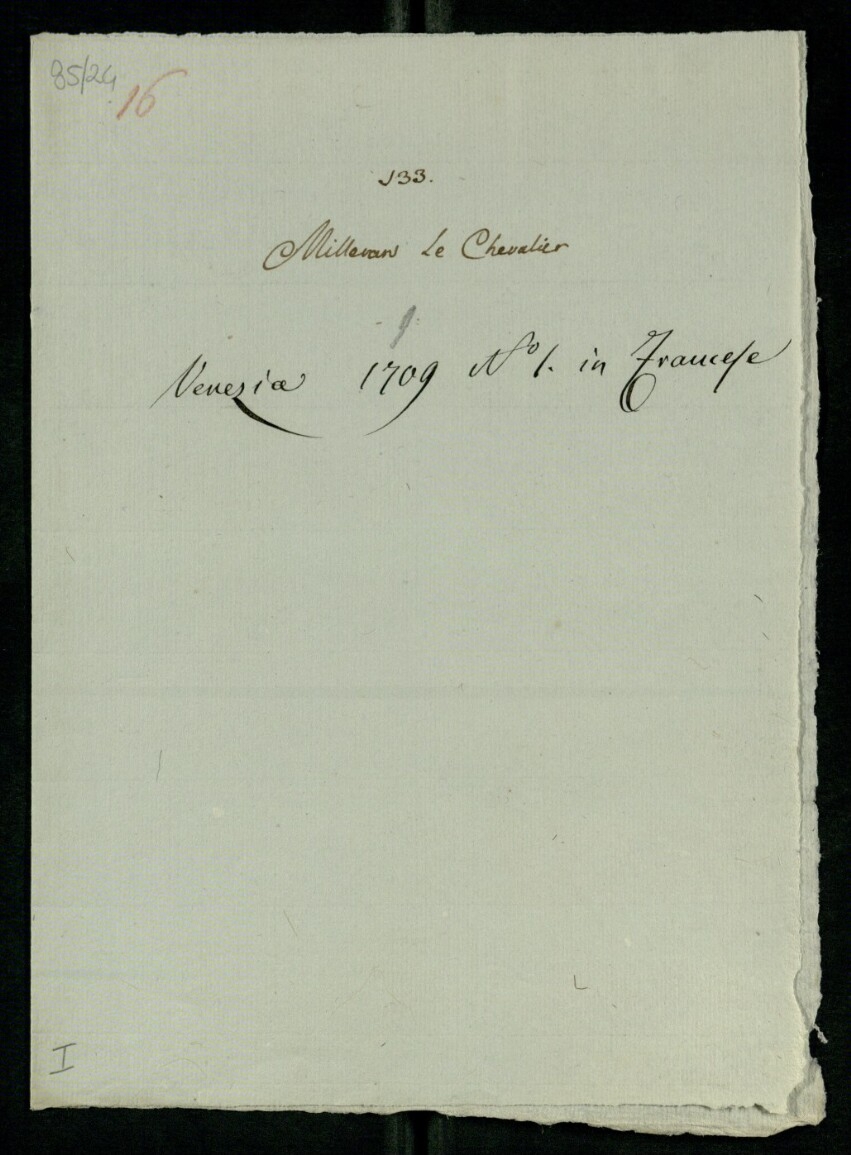 85/24
16
133.
Millevan Le Chevalier
9
Venezia 1709 No 1. in Francese
I